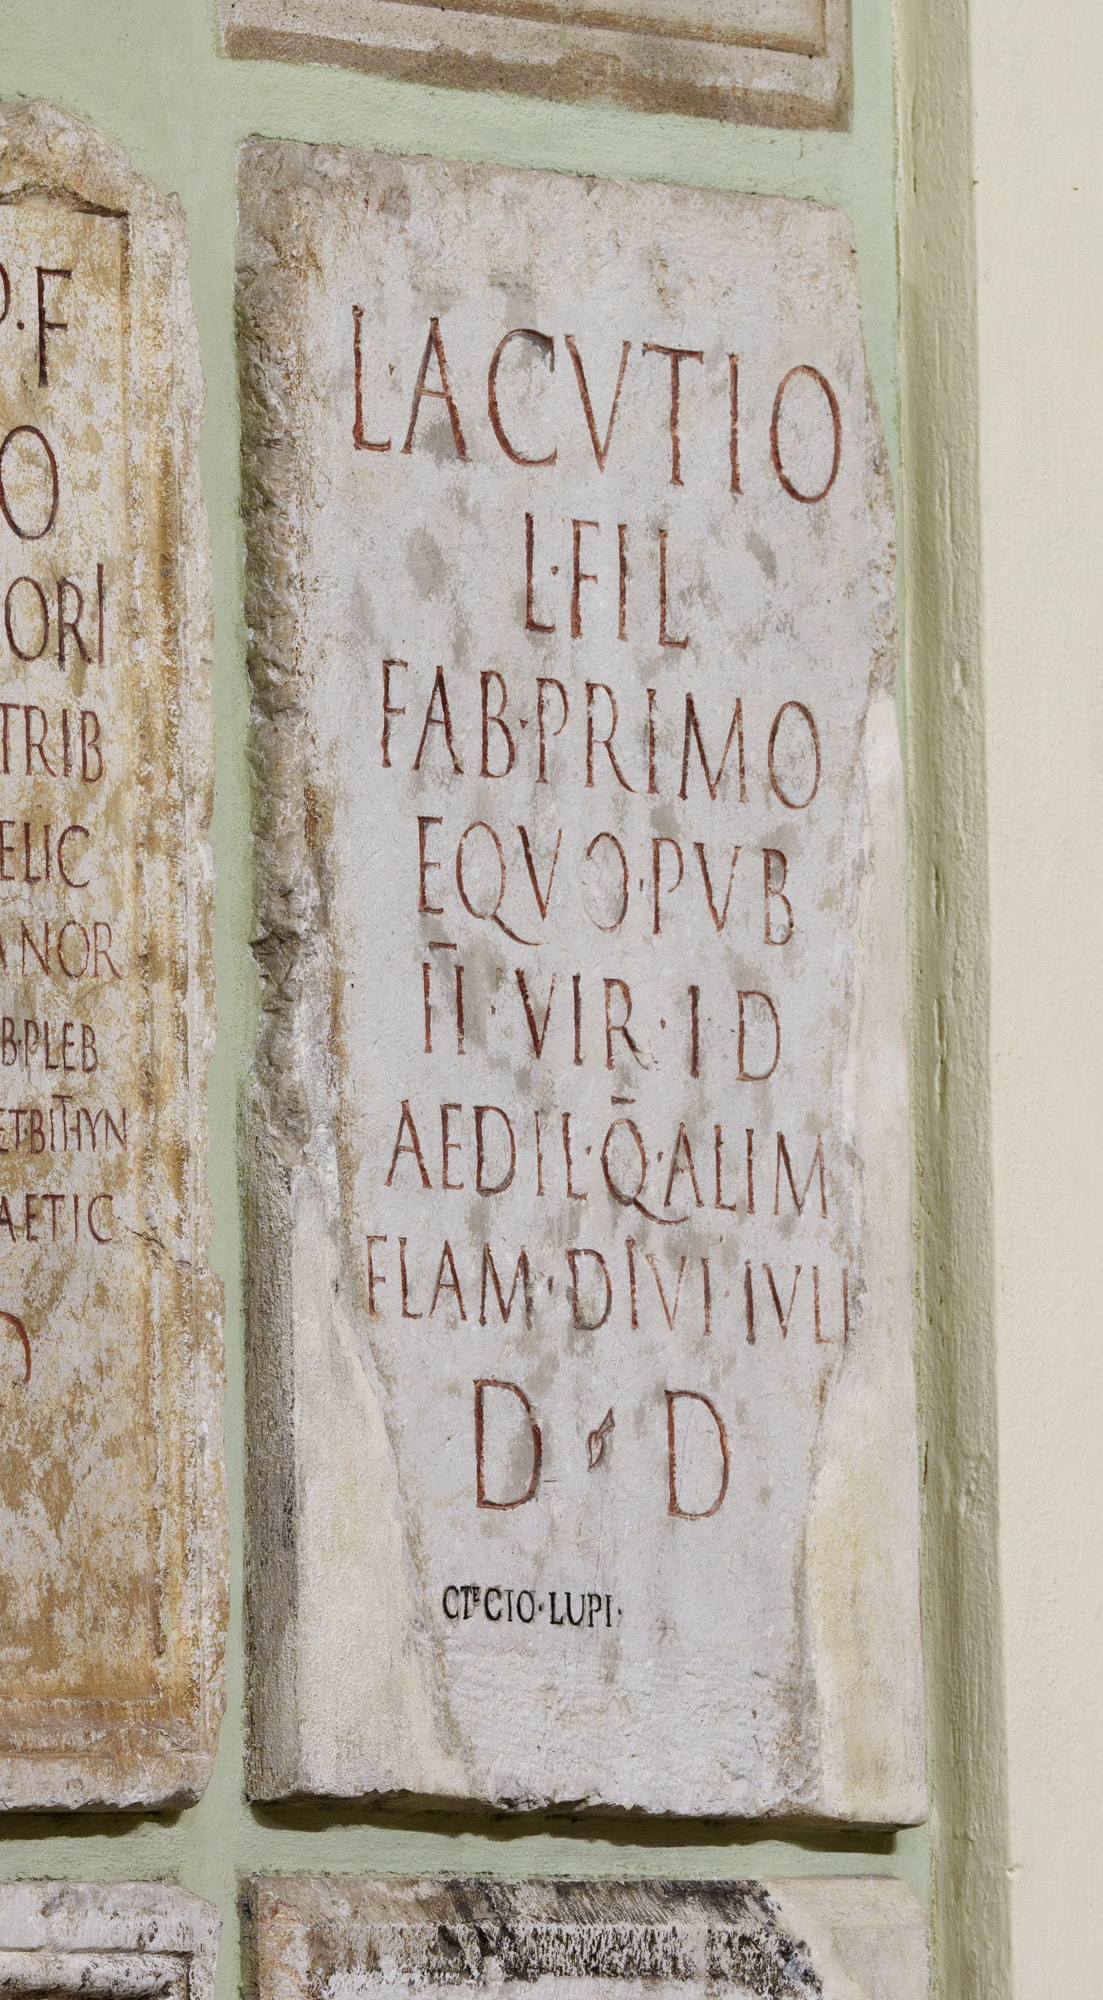 P·F
O
ORI
TRIB
ELIC
ANOR
B·PLEB
ET·BITHYN
AETIC
L·ACVTIO
L·FIL
FAB·PRIMO
EQVO·PVB
II·VIR·I D
AEDIL·Q·ALIM
FLAM·DIVI·IVLI
D D
LUPI·